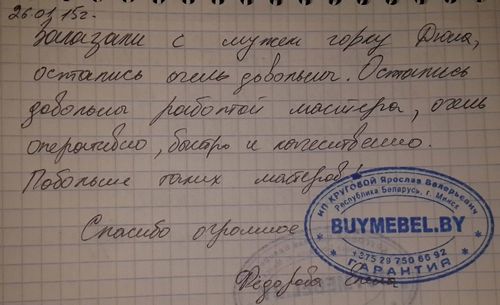 26.01.15г.
Заказали с мужем горку Дюна,
остались очень довольны. Остались
довольны работой мастера, очень
оперативно, быстро и качественно.
Побольше таких мастеров!
Спасибо огромное
Фёдорова Елена
ИП КРУГОВОЙ Ярослав Валерьевич
Республика Беларусь, г. Минск
BUYMEBEL.BY
+375 29 750 66 92
ГАРАНТИЯ